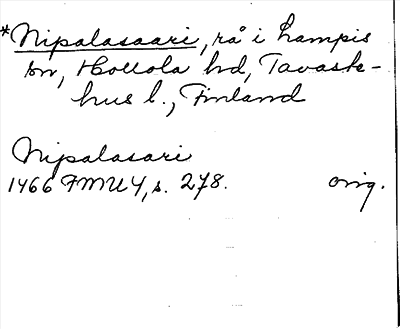 *Nipalasaari, rå i Lampis
sn, Hollola hd, Tavaste-
hus l., Finland
Nipalasari
1466 FMU 4, s. 278. orig.